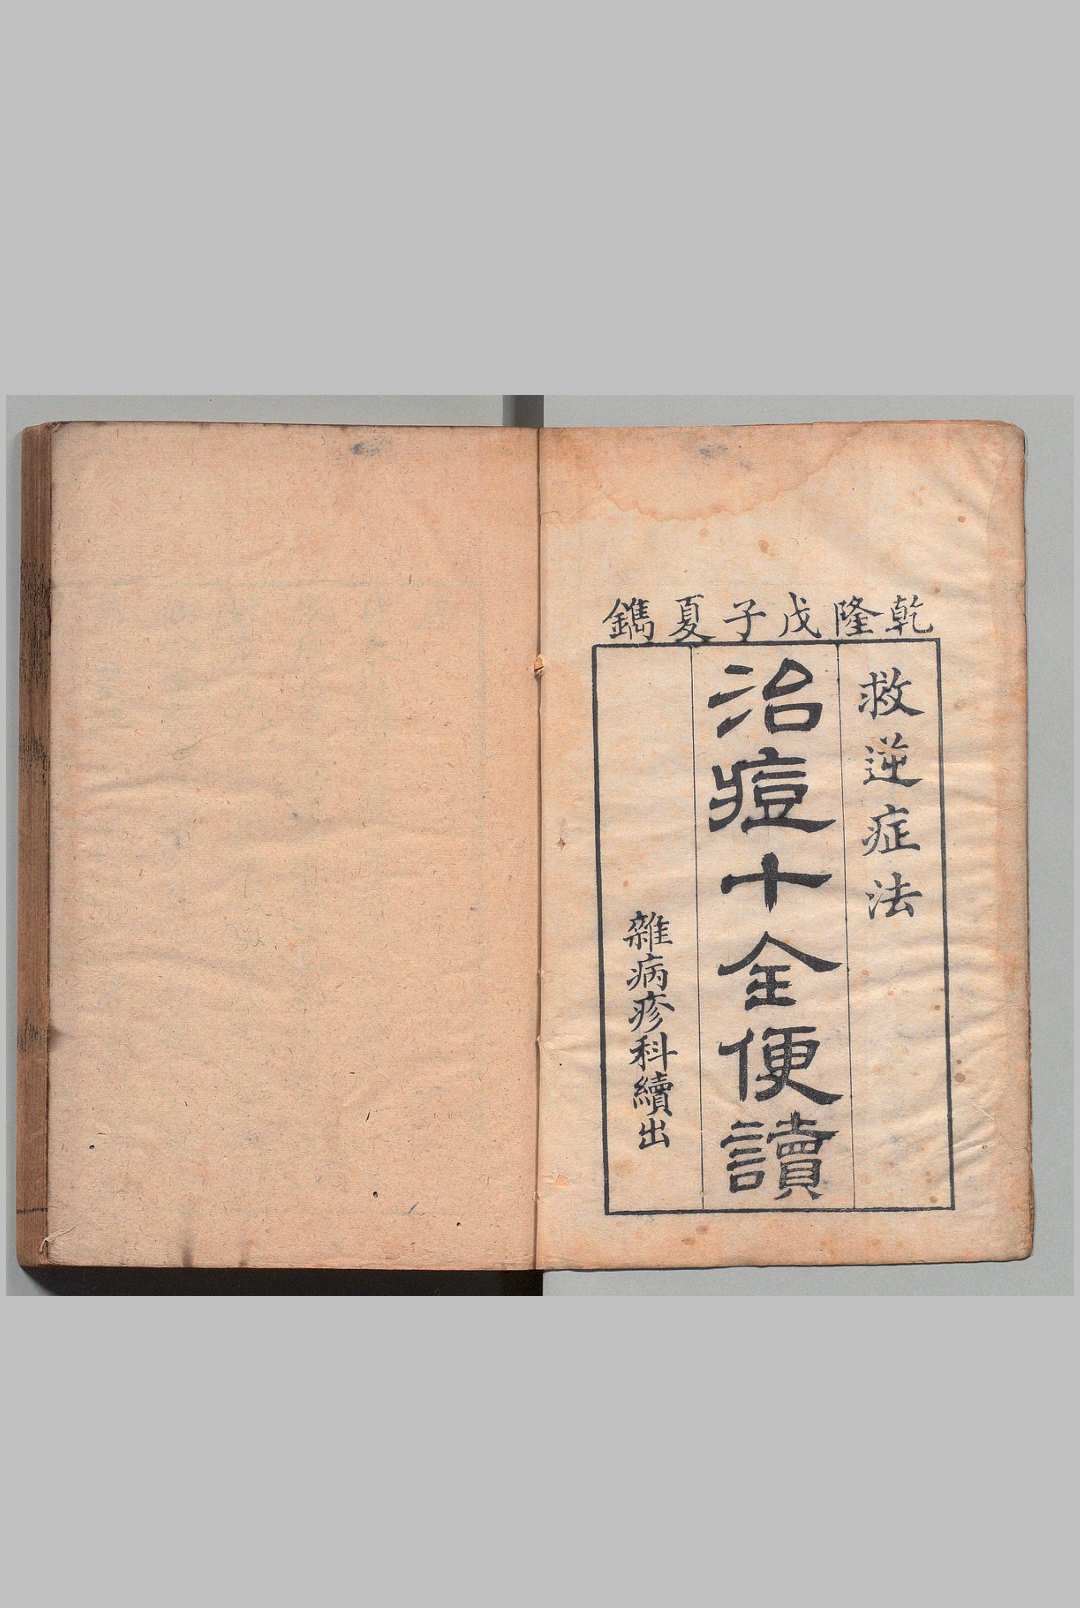 乾隆戊子夏鐫
救逆症法
治痘十全便讀
雜病疹科續出